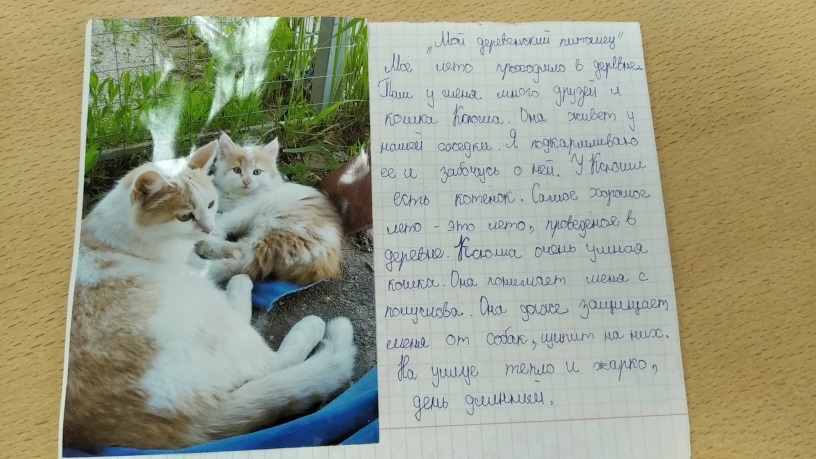 „Мой деревенский питомец"
Мое лето проходило в деревне.
Там у меня много друзей и
кошка Ксюша. Она живет у
нашей соседки. Я подкармливаю
ее и забочусь о ней. У Ксюши
есть котенок. Самое хорошое
лето - это лето, проведеное в
деревне. Ксюша очень умная
кошка. Она понемает меня с
полуслова. Она даже защищает
меня от собак, шипит на них.
На улице тепло и жарко,
день длинный.